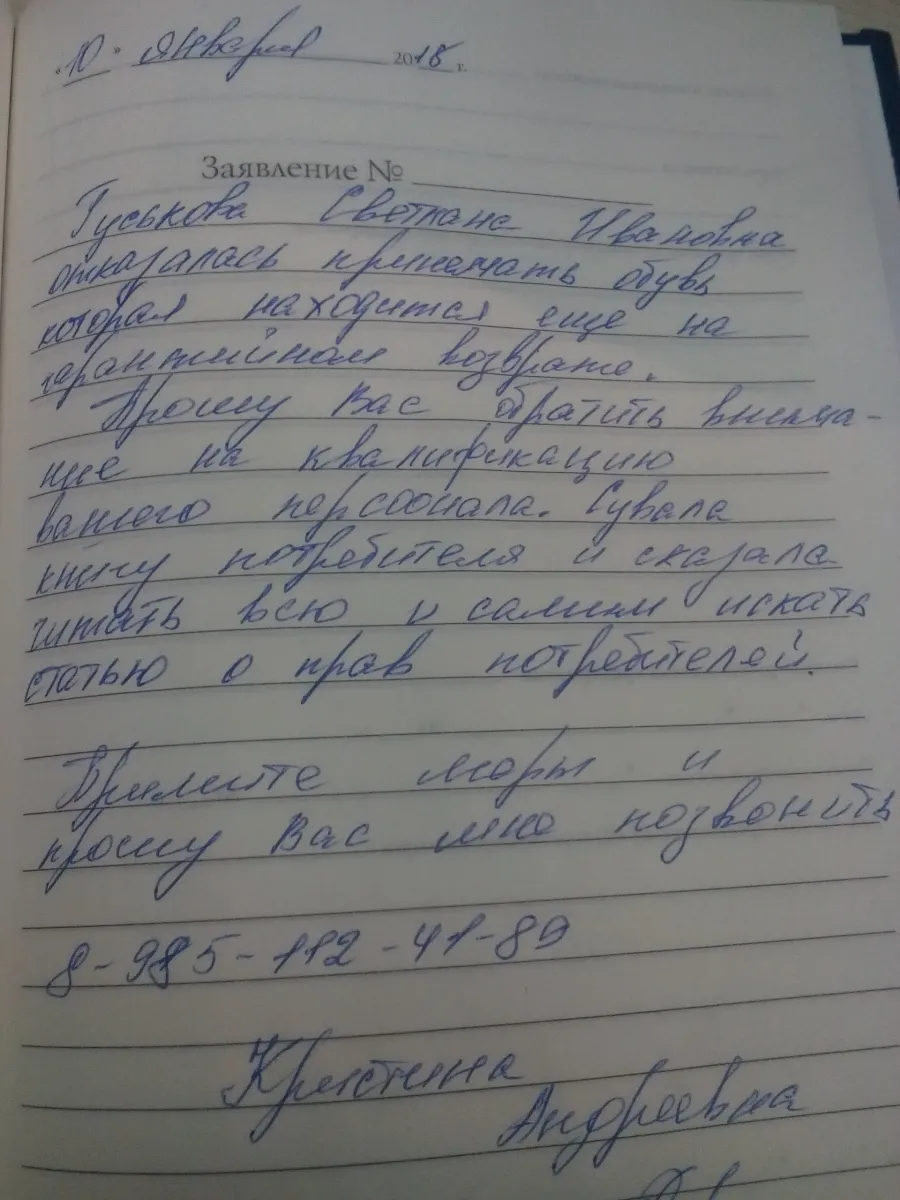 "10" января 2018 г.
Заявление №
Гуськова Светлана Ивановна
отказалась принемать обувь
которая находится еще на
гарантийном возврате.
Прошу Вас обратить внима-
ние на квалификацию
вашего персоонала. Сувала
книгу потребителя и сказала
читать всю и самим искать
статью о прав потребителей.
Примите меры и
прошу Вас мне позвонить
8-985-112-41-89
Кристина
Андреевна